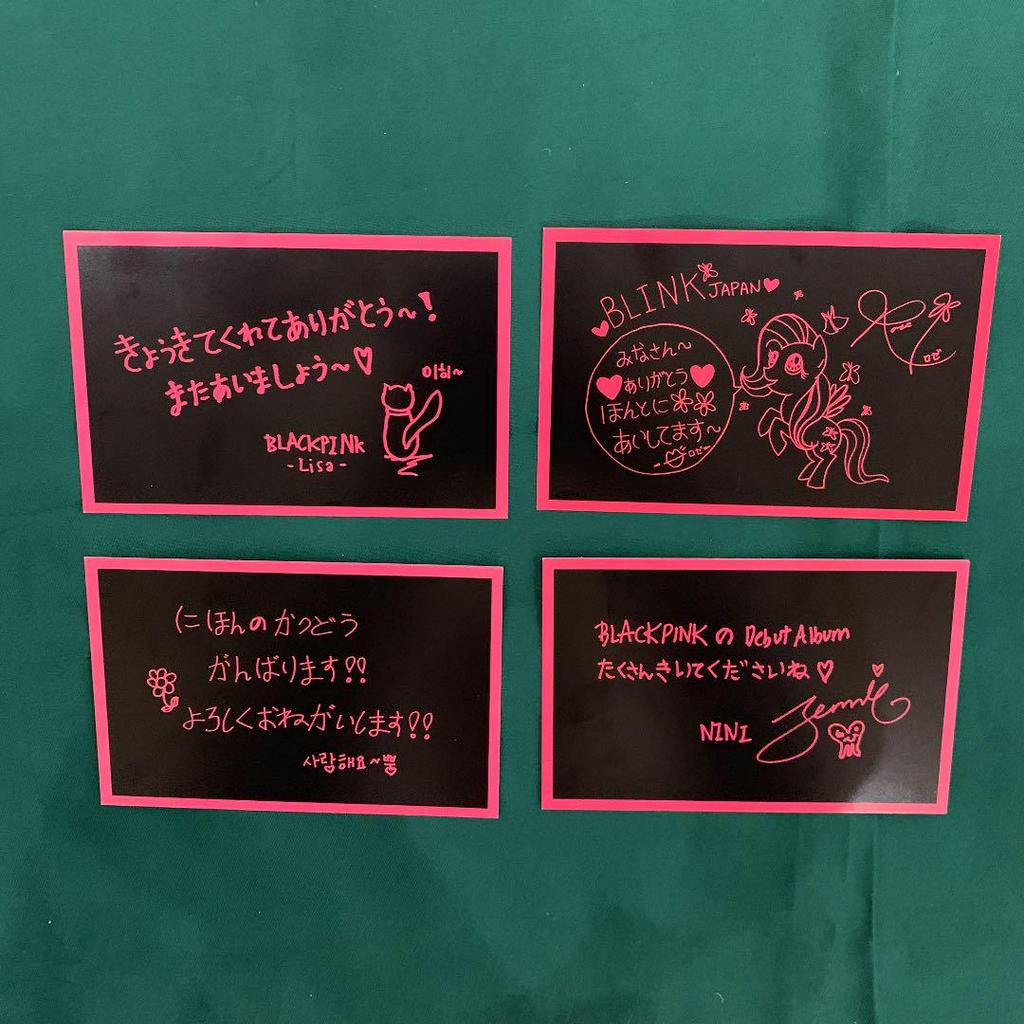 きょうきてくれてありがとう〜!
またあいましょう〜♡
이히~
BLACKPINK
-Lisa-
BLINK JAPAN
みなさん〜
ありがとう
ほんとに
あいしてます〜
ロゼ
Rosé
ロゼ
にほんのかつどう
がんばります!!
よろしくおねがいします!!
사랑해요~뿅
BLACKPINKの Debut Album
たくさんきいてくださいね♡
NINI
Jennie